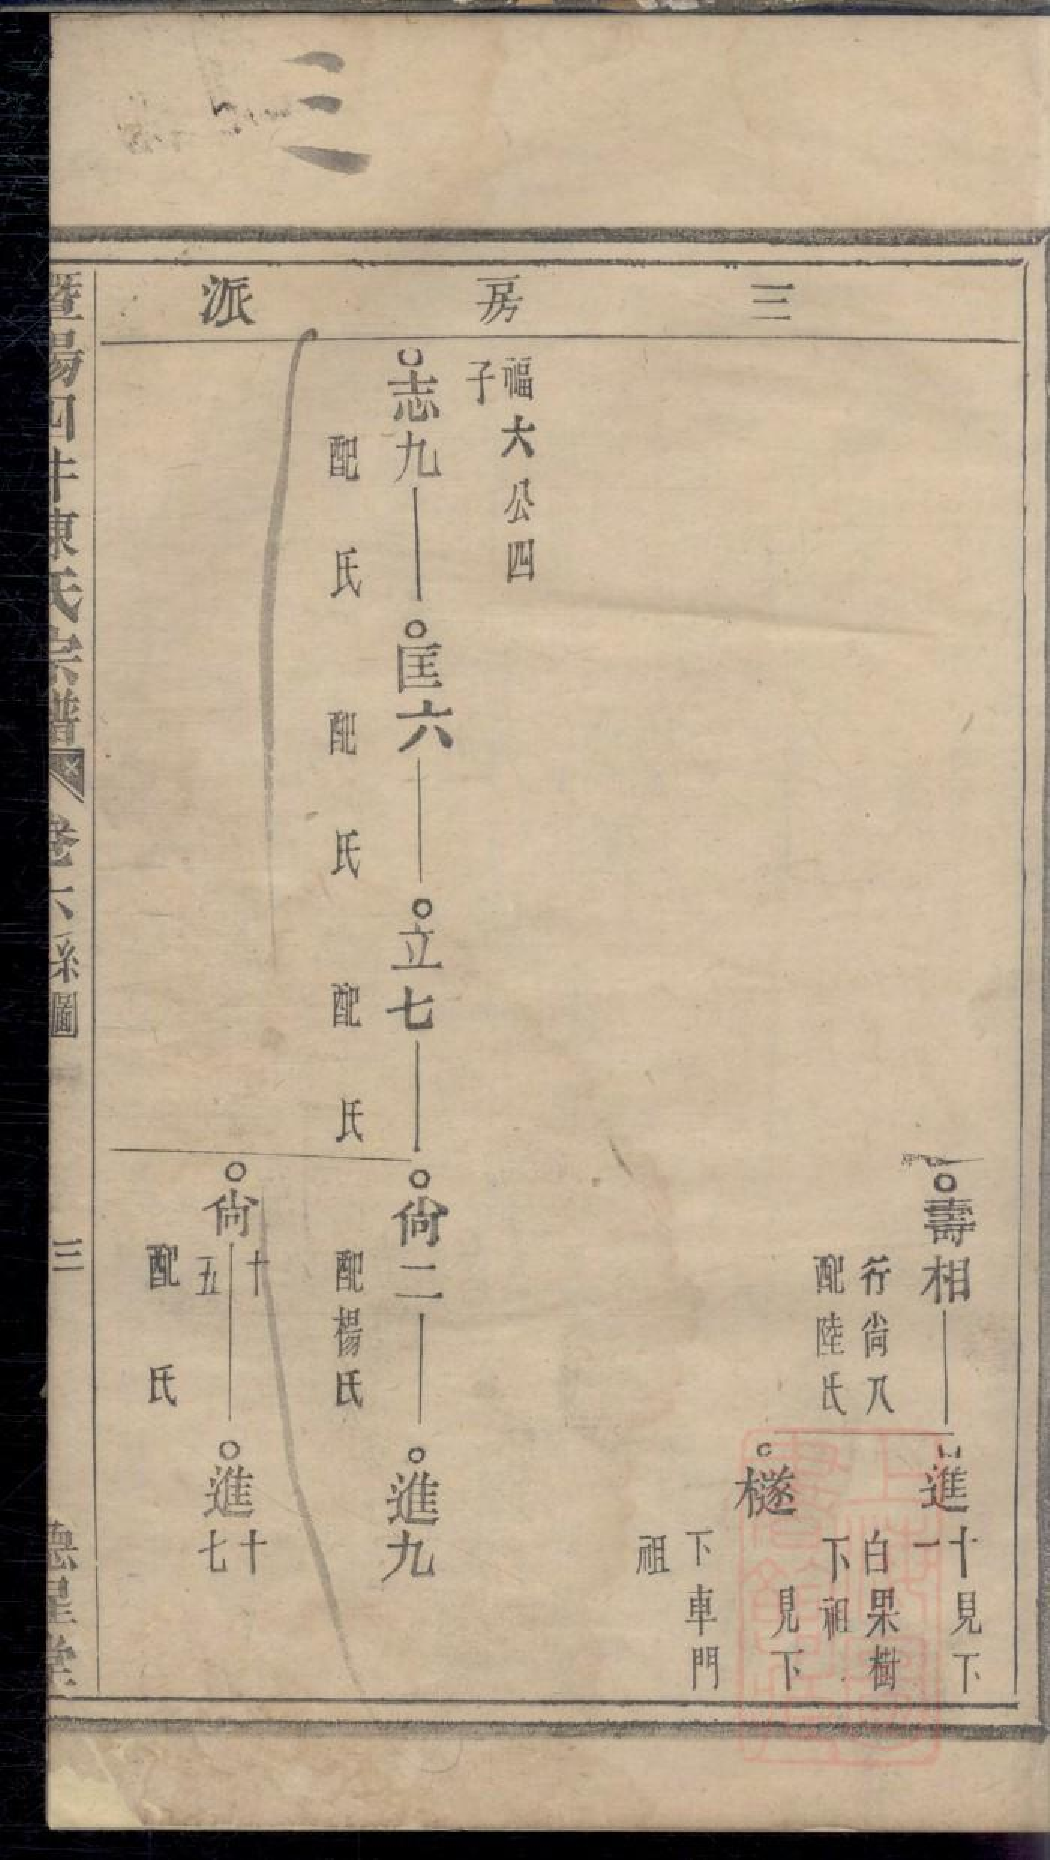 三
三房派
壽相
行尙八
配陸氏
進十一
見下
白果樹
下祖
檖
見下
下車門
祖
福大公四
子
志九
配 氏
匡六
配 氏
立七
配 氏
尙二
配楊氏
進九
尙十五
配 氏
進十七
暨陽四牛陳氏宗譜 卷六系圖 三 德星堂